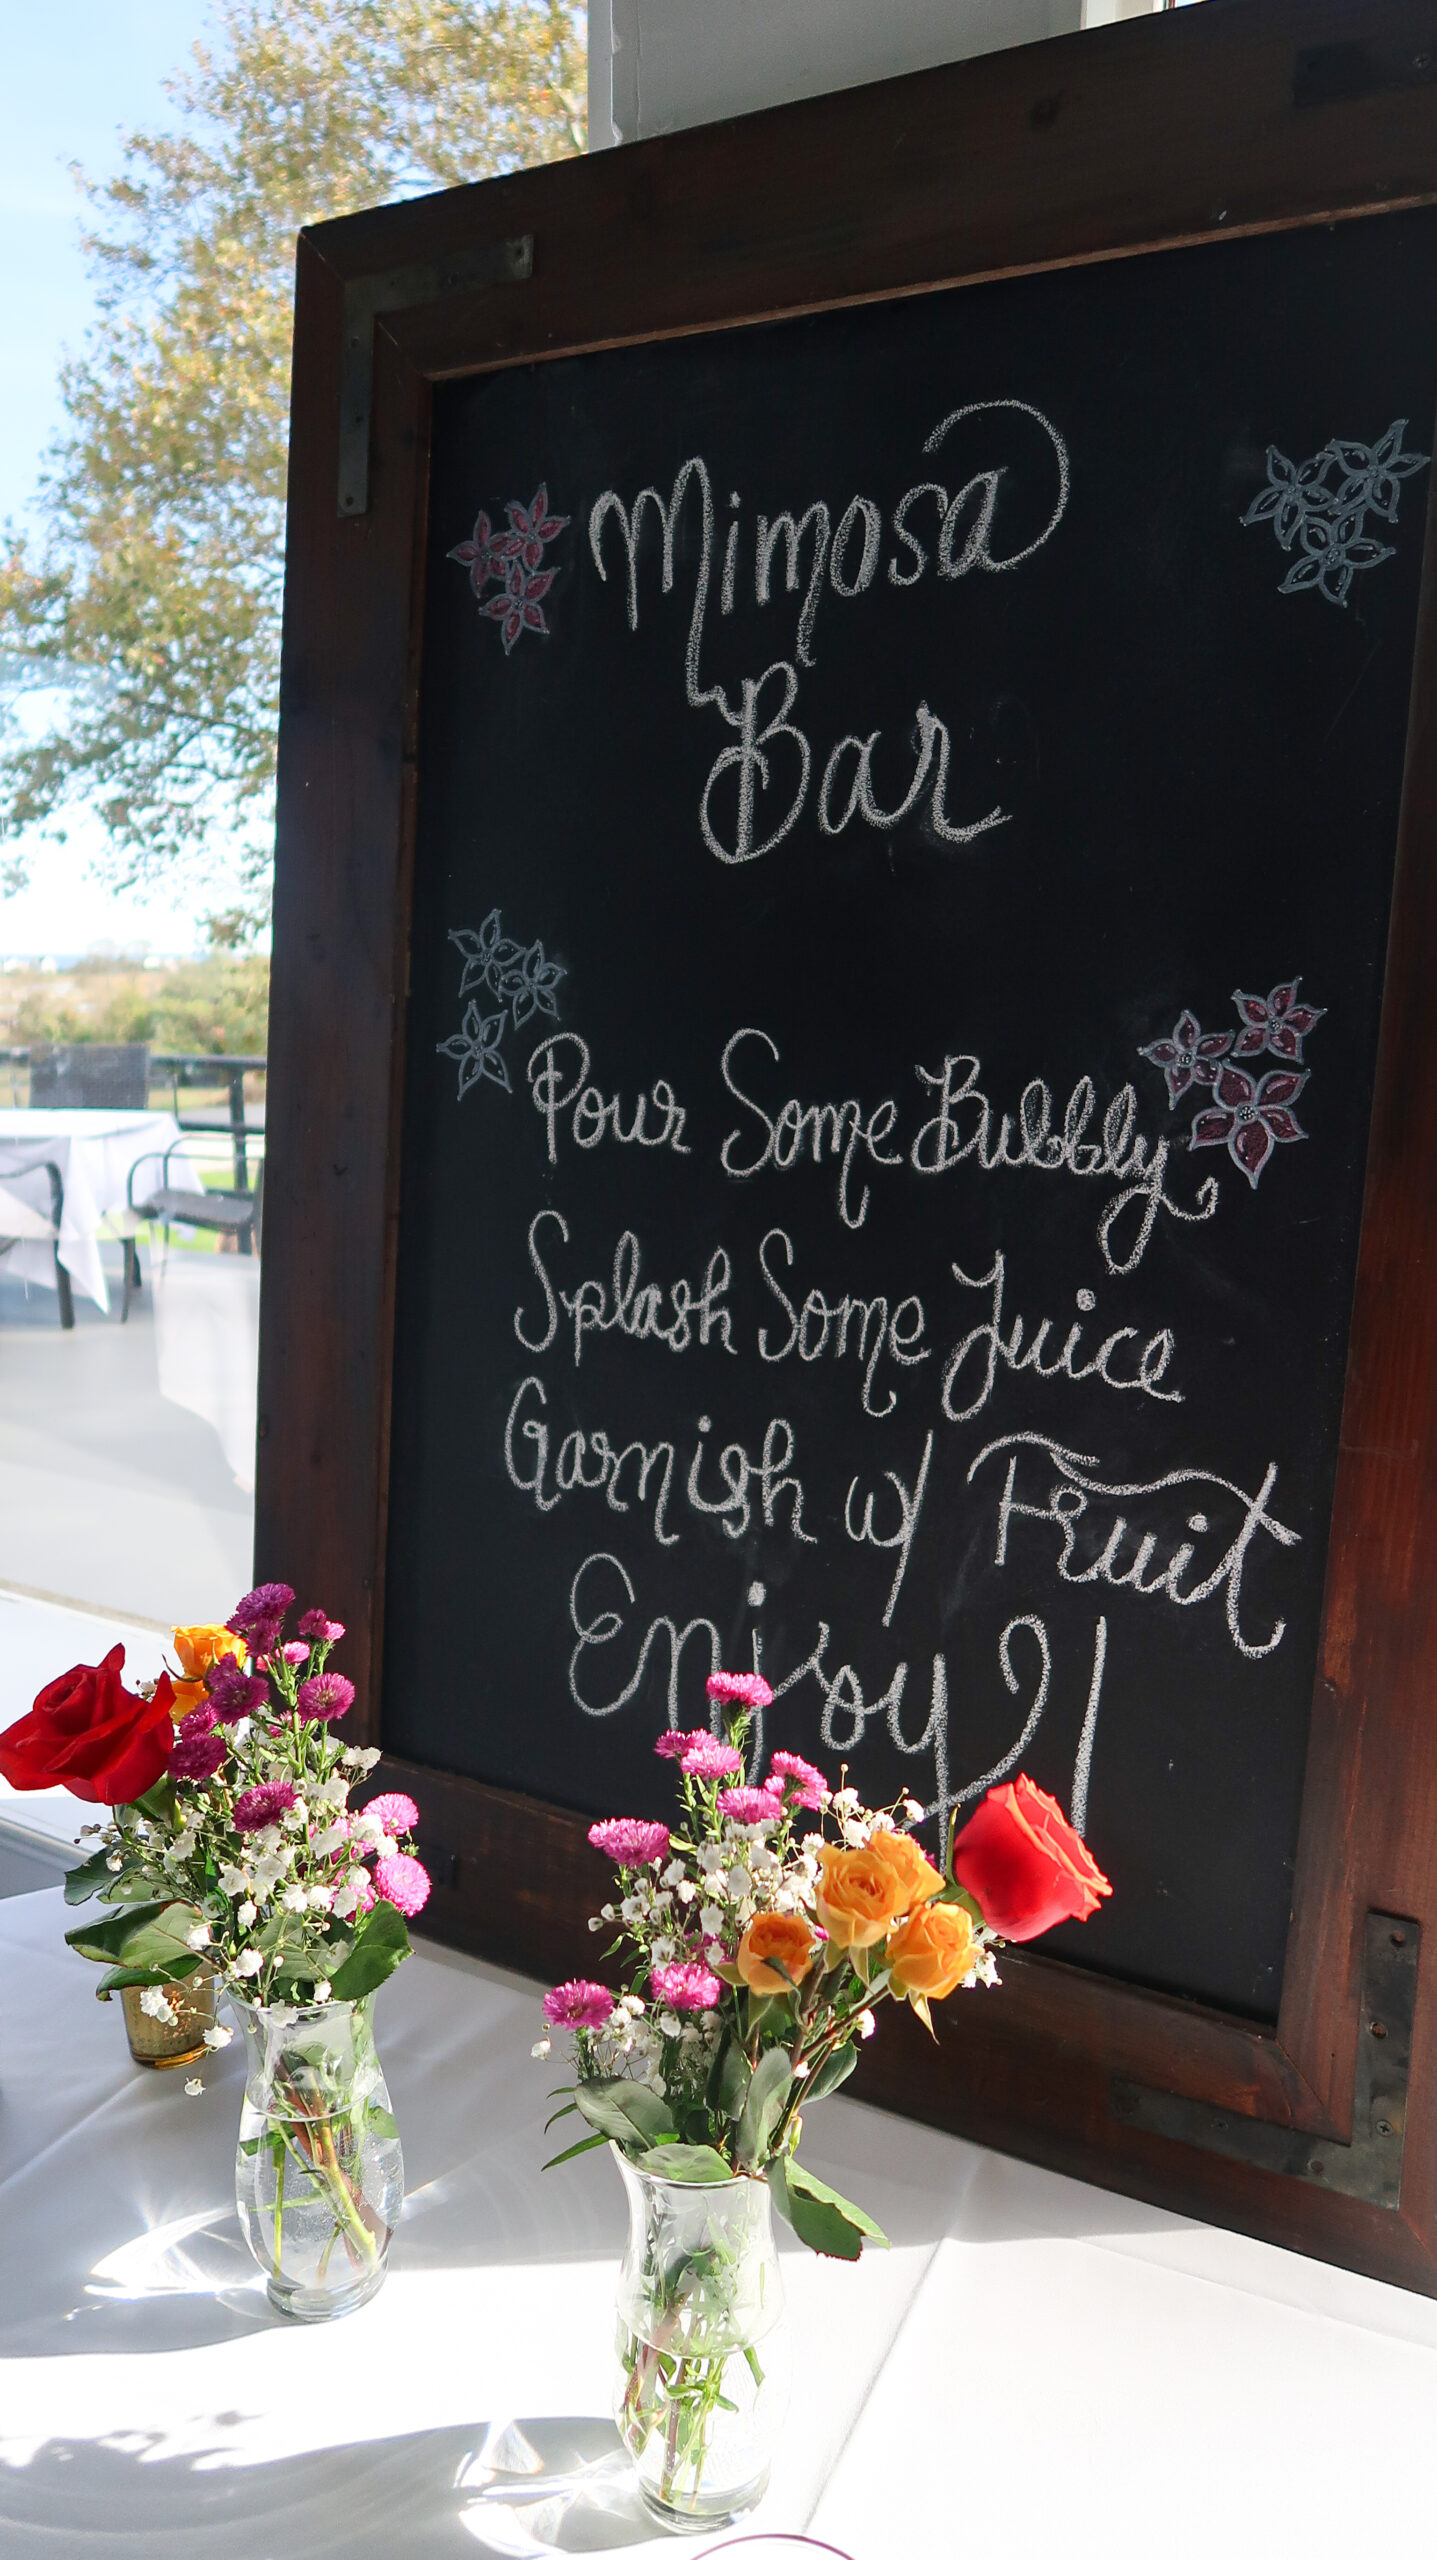 Mimosa
Bar
Pour Some Bubbly
Splash Some Juice
Garnish w/ Fruit
Enjoy!